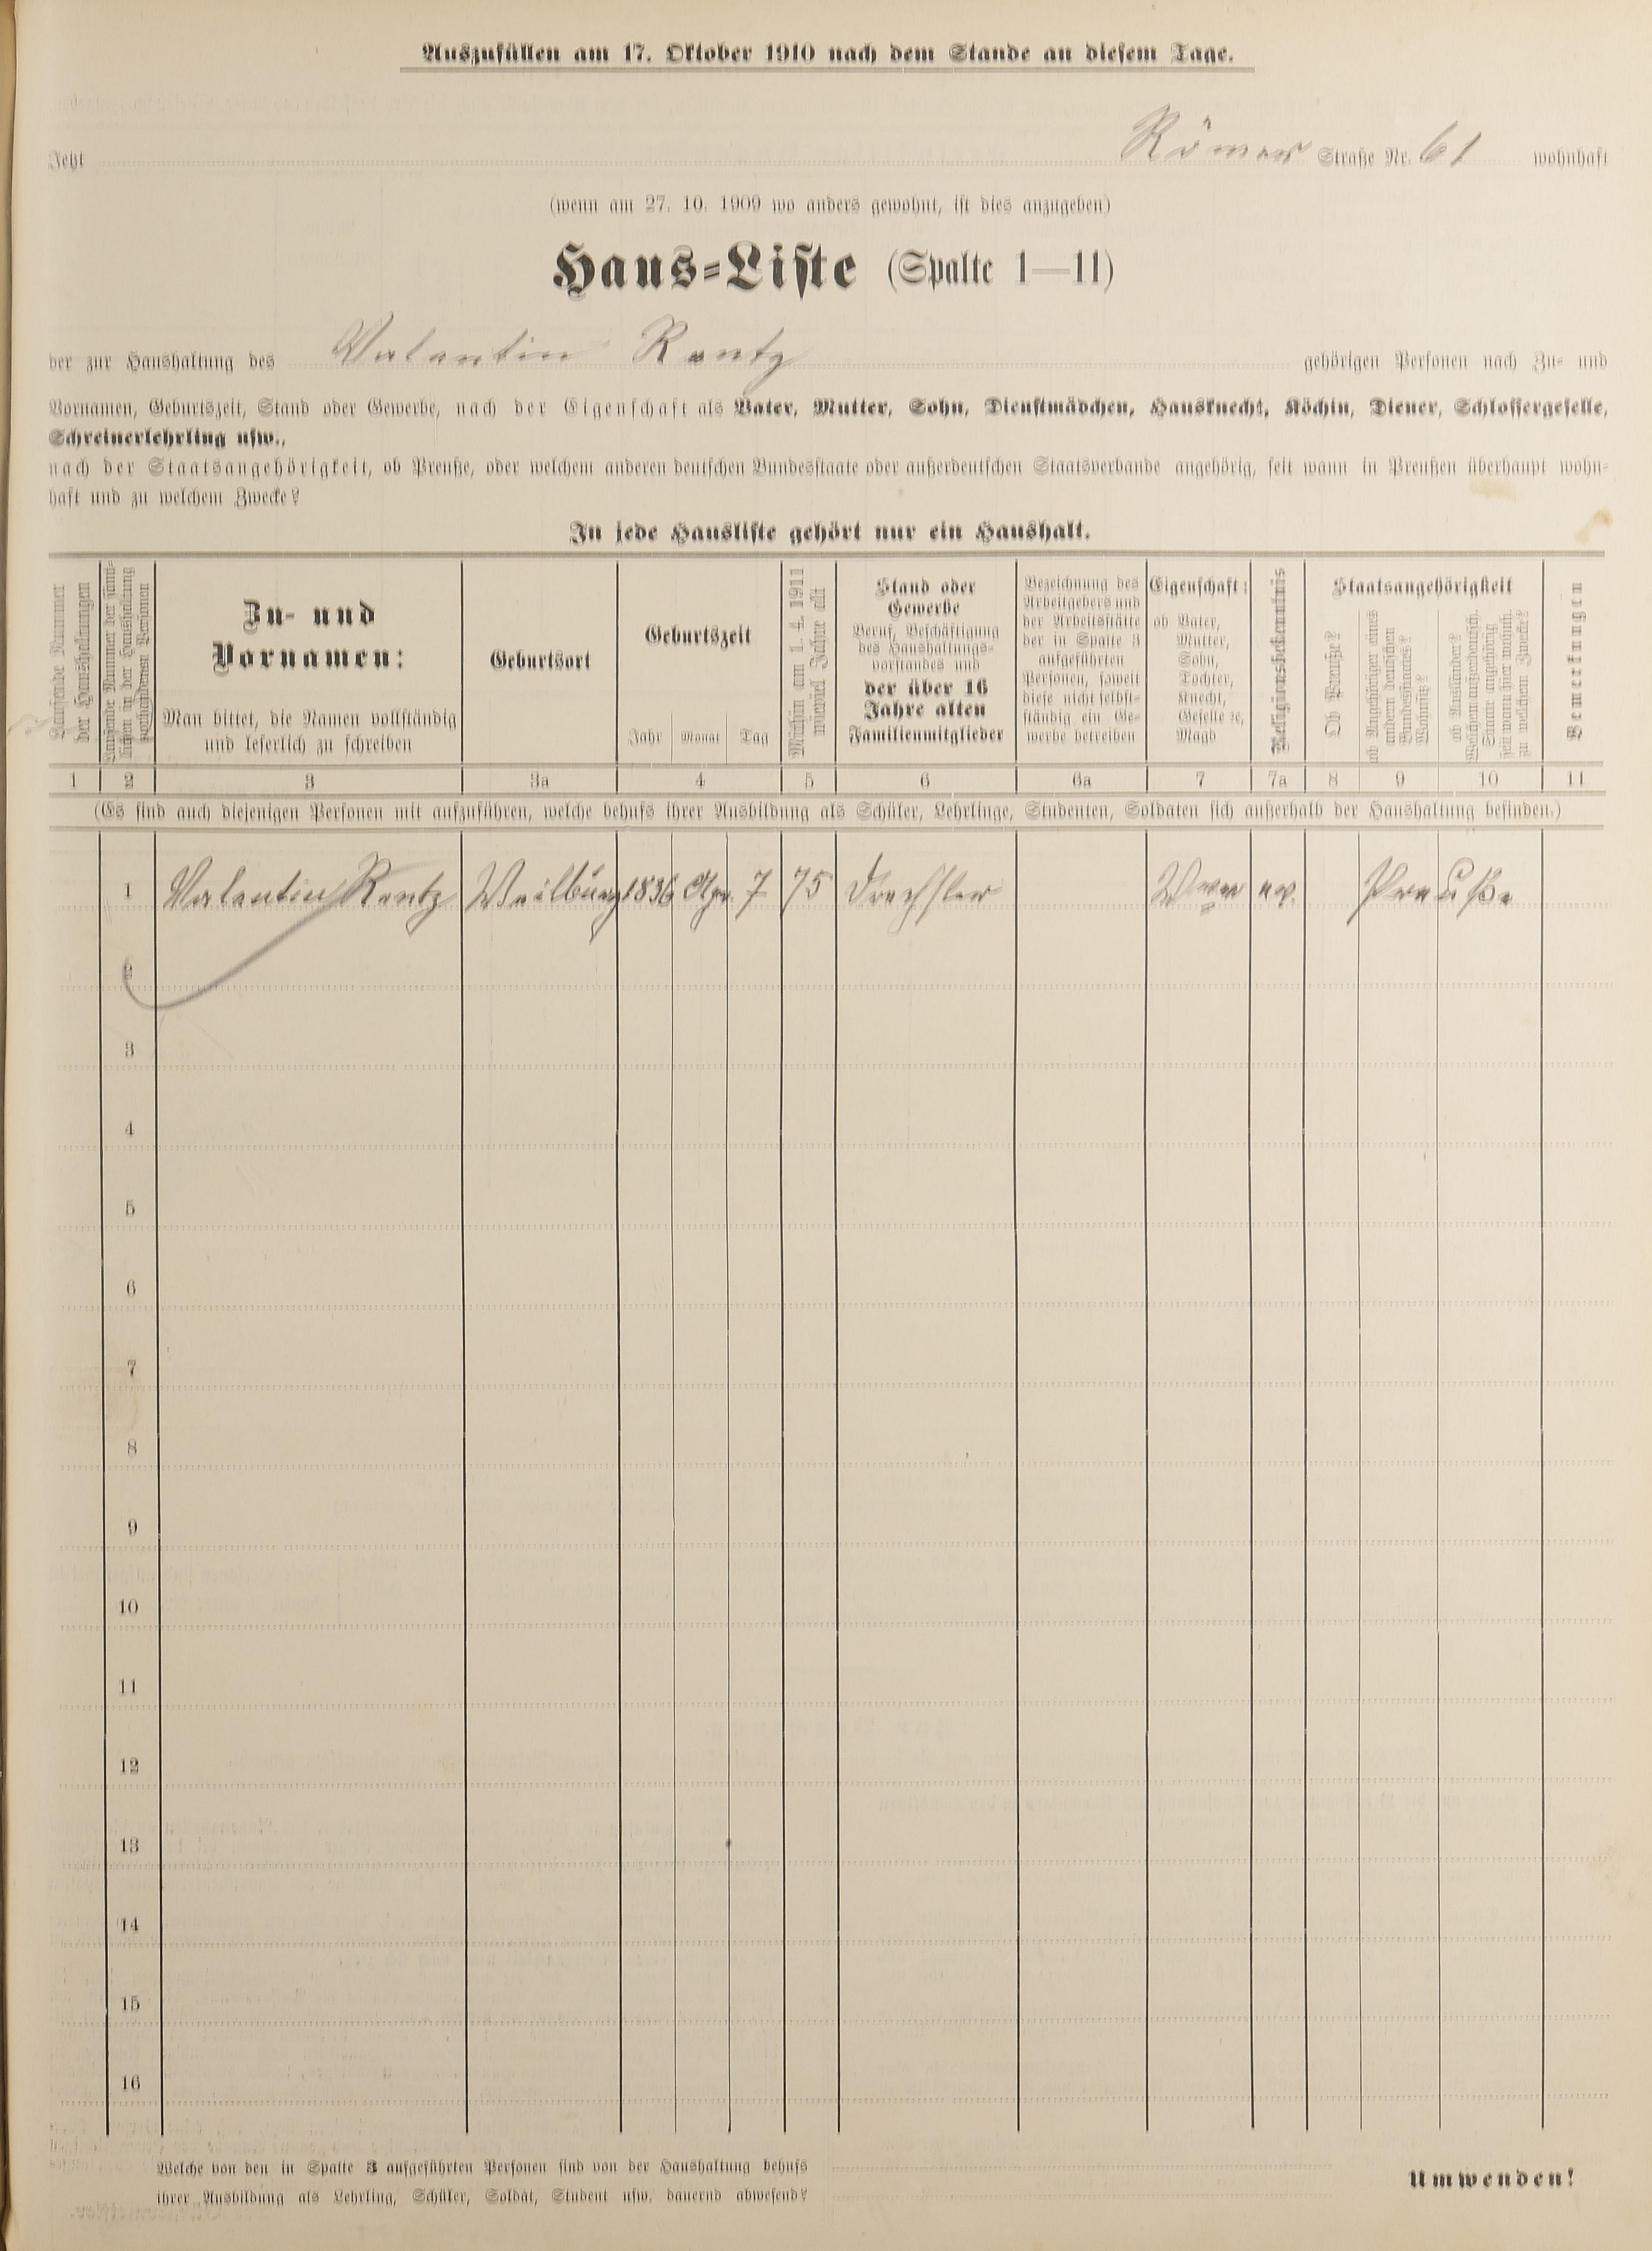 Auszufüllen am 17. Oktober 1910 nach dem Stande an diesem Tage.
Jetzt Römer Straße Nr. 61 wohnhaft
(wenn am 27. 10. 1909 wo anders gewohnt, ist dies anzugeben)
Haus=Liste (Spalte 1—11)
der zur Haushaltung des Valentin Rentz gehörigen Personen nach Zu- und
Vornamen, Geburtszeit, Stand oder Gewerbe, nach der Eigenschaft als Vater, Mutter, Sohn, Dienstmädchen, Hausknecht, Köchin, Diener, Schlossergeselle,
Schreinerlehrling usw.,
nach der Staatsangehörigkeit, ob Preuße, oder welchem anderen deutschen Bundesstaate oder außerdeutschen Staatsverbande angehörig, seit wann in Preußen überhaupt wohn-
haft und zu welchem Zwecke?
In jede Hausliste gehört nur ein Haushalt.
Laufende Nummer
der Haushaltungen
Laufende Nummer der sämt-
lichen in der Haushaltung
vorhandenen Personen
Zu- und
Vornamen:
Man bittet, die Namen vollständig
und leserlich zu schreiben
Geburtsort
Geburtszeit
Jahr Monat Tag
Mithin am 1. 4. 1911
wieviel Jahre alt
Stand oder
Gewerbe
Beruf, Beschäftigung
des Haushaltungs-
vorstandes und
der über 16
Jahre alten
Familienmitglieder
Bezeichnung des
Arbeitgebers und
der Arbeitsstätte
der in Spalte 3
aufgeführten
Personen, soweit
diese nicht selbst-
ständig ein Ge-
werbe betreiben
Eigenschaft:
ob Vater,
Mutter,
Sohn,
Tochter,
Knecht,
Geselle ꝛc,
Magd
Religionsbekenntnis
Staatsangehörigkeit
Ob Preuße?
ob Angehöriger eines
andern deutschen
Bundesstaates?
Wohnsitz?
ob Ausländer?
Welchem außerdeutsch.
Staate angehörig
seit wann hier wohnh.
zu welchem Zwecke?
Bemerkungen
1 2 3 3a 4 5 6 6a 7 7a 8 9 10 11
(Es sind auch diejenigen Personen mit aufzuführen, welche behufs ihrer Ausbildung als Schüler, Lehrlinge, Studenten, Soldaten sich außerhalb der Haushaltung befinden.)
1 Valentin Rentz Weilburg 1836 Apr. 7 75 Drechsler Wwr ev. Preuße
2
3
4
5
6
7
8
9
10
11
12
13
14
15
16
Welche von den in Spalte 3 aufgeführten Personen sind von der Haushaltung behufs
ihrer Ausbildung als Lehrling, Schüler, Soldat, Student usw. dauernd abwesend?
Umwenden!